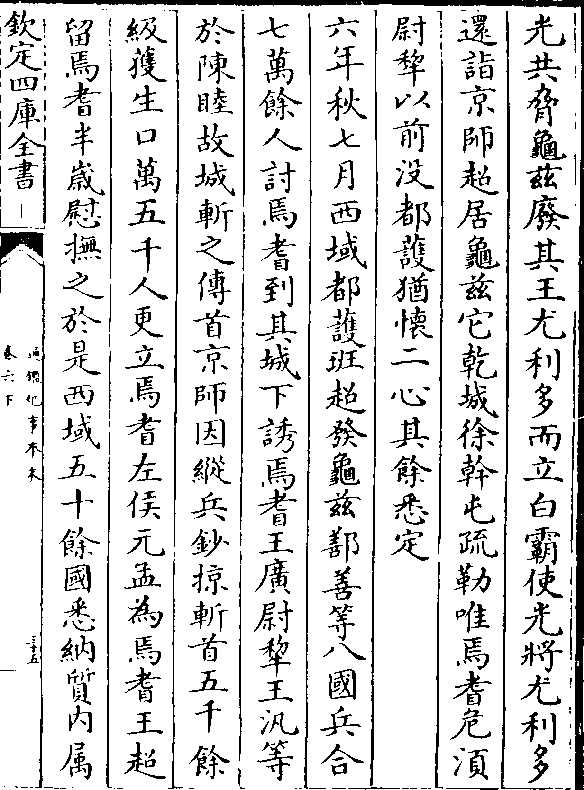 光共脅龜兹廢其王尤利多而立白霸使光將尤利多
還詣京師超居龜兹它乾城徐幹屯疏勒唯焉耆危湏
尉犂以前没都護猶懷二心其餘悉定
六年秋七月西域都護班超發龜兹鄯善等八國兵合
七萬餘人討焉耆到其城下誘焉耆王廣尉犂王汎等
於陳睦故城斬之傳首京師因縱兵鈔掠斬首五千餘
級獲生口萬五千人更立焉耆左侯元孟為焉耆王超
留焉耆半嵗慰撫之於是西域五十餘國悉納質内属
欽定四庫全書
通鑑紀事本末
卷六下
三十五